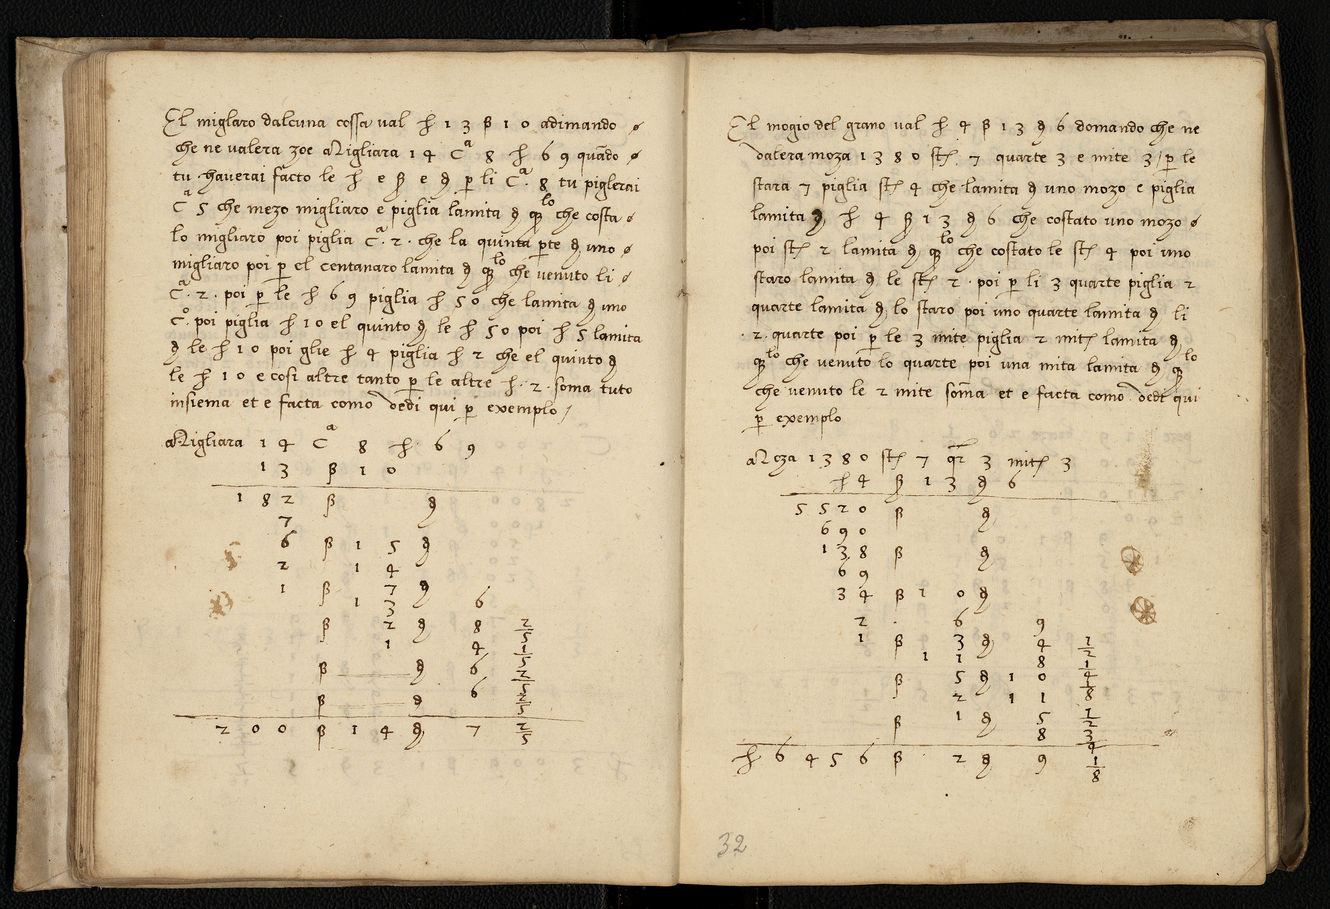 El miglaro dalcuna cossa val ħ 1 3 ß 1 0 adimando
che ne valera zoe Migliara 1 4 Cᵃ 8 ħ 6 9 quādo
tu haverai facto le ħ e ß e ₰ p̱ li Cᵃ. 8 tu piglerai
Cᵃ 5 che mezo migliaro e piglia lamita ₰ qͣlo che costa
lo migliaro poi piglia Cᵃ. 2. che la quinta p̱te ₰ uno
migliaro poi p̱ el centanaro lamita ₰ qͣlo che venuto li
Cᵃ. 2. poi p̱ le ħ 6 9 piglia ħ 5 0 che lamita ₰ uno
Cº. poi piglia ħ 1 0 el quinto ₰ le ħ 5 0 poi ħ 5 lamita
₰ le ħ 1 0 poi glie ħ 4 piglia ħ 2 che el quinto ₰
le ħ 1 0 e cosi altre tanto p̱ le altre ħ. 2. soma tuto
insiema et e facta como vedi qui p̱ exemplo
Migliara 1 4 Cᵃ 8 ħ. 6 9
1 3 ß 1 0
1 8 2 ß ₰
7
6 ß 1 5 ₰
2 1 4
1 ß 7 ₰
1 3 6
ß 2 ₰ 8 2/5
1 4 1/5
ß ₰ 6 2/5
ß ₰ 6 2/5
2 0 0 ß 1 4 ₰ 7 2/5
El mogio del grano val ħ 4 ß 1 3 ₰ 6 domando che ne
valera moza 1 3 8 0 st̄ 7 quarte 3 e mite 3 p̱ le
stara 7 piglia st̄ 4 che lamita ₰ uno mozo e piglia
lamita ₰ ħ 4 ß 1 3 ₰ 6 che costato uno mozo
poi st̄ 2 lamita ₰ qͣlo che costato le st̄ 4 poi uno
staro lamita ₰ le st̄ 2. poi p̱ li 3 quarte piglia 2
quarte lamita ₰ lo staro poi uno quarte lamita ₰ li
.2. quarte poi p̱ le 3 mite piglia 2 mit̄ lamita ₰
qͣlo che venuto lo quarte poi una mita lamita ₰ qͣlo
che venuto le 2 mite som̄a et e facta como vedi qui
p̱ exemplo
Moza 1 3 8 0 st̄ 7 qr̄ 3 mit̄ 3
ħ 4 ß 1 3 ₰ 6
5 5 2 0 ß ₰
6 9 0
1 3 8 ß ₰
6 9
3 4 ß 1 0 ₰
2 . 6 9
1 ß 3 ₰ 4 1/2
1 1 8 1/4
ß 5 ₰ 1 0 1/8
2 1 1
ß 1 ₰ 5 1/2
8 3/4
ħ 6 4 5 6 ß . 2 ₰ 9 1/8
32